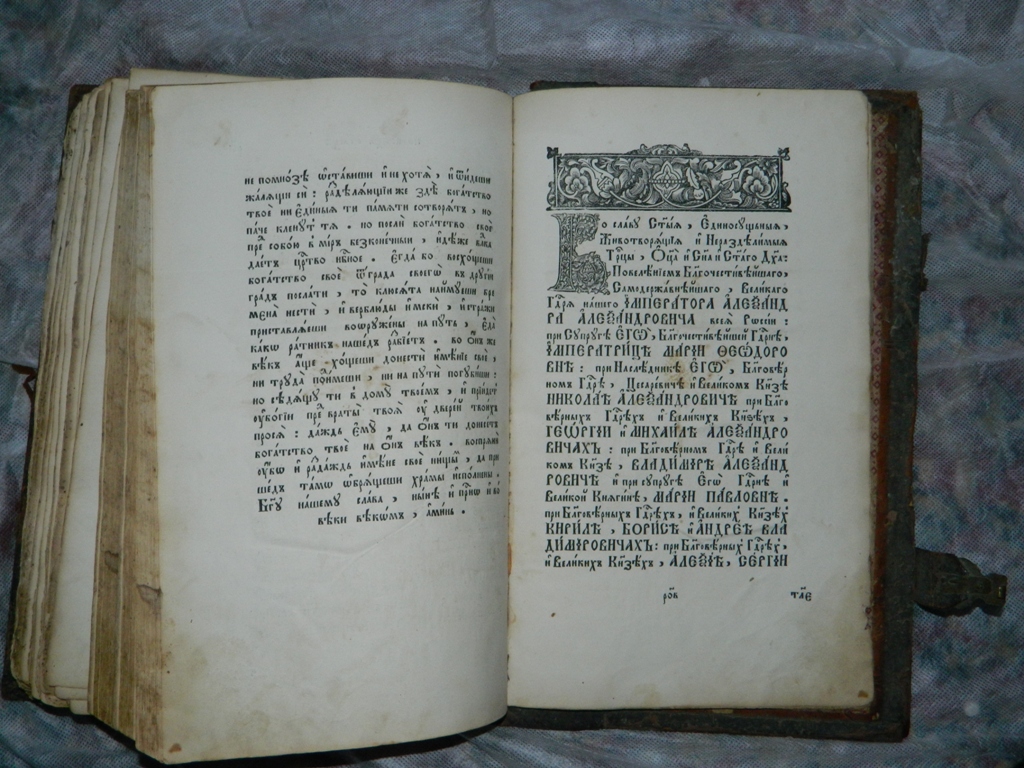 не помнозѣ ѡ҆ставиши и҆ не хотѧ̀, и҆ ѿидеши
жалаѧщи си̑: раⷥдѣлѧ́ющїи же здѣ̀ бога́тство
твоѐ ни є҆ди́ныѧ ти па́мѧти сотворѧ́тъ, но
па́че клену́тъ тѧ̀. но послѝ бога́тство своѐ
преⷣ собо́ю в ми́ръ безконе́чный, и҆дѣ́же влⷣка
дае́тъ црⷭ҇тво нбⷭ҇ное. є҆гда́ бо восхо́щеши
бога́тство своѐ ѿ гра́да своегѡ̀ въ дру́гїй
гра́дъ посла́ти, то клюсѧ́та найму́еши бре
мена̀ нестѝ, и҆ верблю́ды и҆ мески̑, и҆ стра́жи
приставлѧ́еши воѡруже́ны на пу́ть, є҆да̀
ка́кѡ ра́тникъ наше́дъ раⷥбїе́тъ. во ѻ҆́нъ же
вѣ́къ а҆́ще хо́щеши донестѝ и҆мѣ́нїе своѐ,
ни труда̀ прїи́меши, ни на путѝ погу́биши:
но сѣдѧ́щу ти в дому̀ твое́мъ, и҆ прїи́детъ
ѹ҆бо́гїй преⷣ врата̀ твоѧ̑ ѹ҆ две́рей твои́хъ
просѧ̀: да́ждь є҆му̀, да ѻ҆́нъ ти донесе́тъ
бога́тство твоѐ на ѻ҆́нъ вѣ́къ. воспрѧнѝ
ѹ҆́бѡ и҆ раⷥда́ждь и҆мѣ́нїе своѐ ни́щымъ, да при
ше́дъ та́мѡ ѡ҆брѧ́щеши хра́мы и҆спо́лнены.
Бг҃у на́шему сла́ва, ны́нѣ и҆ при́снѡ и҆ во
вѣ́ки вѣкѡ́мъ, а҆ми́нь.
Во сла́ву Ст҃ы́ѧ, Є҆диносу́щныѧ,
Животворѧ́щїѧ и҆ Нераздѣ́лимыѧ
Трⷪ҇цы, Ѻ҆ц҃а̀ и҆ Сн҃а и҆ Ст҃а́гѡ Дх҃а:
Повелѣ́нїемъ Бл҃гочести́вѣйшаго,
Самодержа́внѣйшаго, Вели́каго
Гдⷭ҇рѧ на́шего И҆МПЕРА́ТОРА А҆ЛЕѮА́НД
РА А҆ЛЕѮА́НДРОВИЧА всеѧ̀ Рѡссі́и:
при Супру́гѣ Є҆ГѠ̀, Бл҃гочести́вѣйшей Гдⷭ҇рнѣ,
И҆МПЕРАТРИ́ЦѢ МАРІ́И ѲЕѠ́ДОРО
ВНѢ: при Наслѣ́дникѣ Є҆ГѠ̀, Бл҃говѣ́р
номъ Гдⷭ҇рѣ, Цесаре́вичѣ и҆ Вели́комъ Кн҃зѣ
НИКОЛА́Ѣ А҆ЛЕѮА́НДРОВИЧѢ при Бл҃го
вѣ́рныхъ Гдⷭ҇рѣхъ и҆ Вели́кихъ Кн҃зѣхъ,
ГЕѠ́РГІИ и҆ МИХАИ́ЛѢ А҆ЛЕѮА́НДРО
ВИЧАХЪ: при Бл҃говѣ́рномъ Гдⷭ҇рѣ и҆ Вели
комъ Кн҃зѣ, ВЛАДИ́МІРѢ А҆ЛЕѮА́НД
РОВИЧѢ и҆ при супру́гѣ Є҆гѡ̀ Гдⷭ҇рнѣ и҆
Вели́кой Кнѧги́нѣ, МАРІ́И ПА́ВЛОВНѢ.
при Бл҃говѣ́рныхъ Гдⷭ҇рѣхъ, и҆ Вели́кихъ Кн҃зѣхъ
КИРИ́ЛѢ, БОРИ́СѢ и҆ А҆НДРЕ́Ѣ ВЛА
ДИ́МІРОВИЧАХЪ: при Бл҃говѣ́рныхъ Гдⷭ҇рѣхъ,
и҆ Вели́кихъ Кн҃зѣхъ, А҆ЛЕѮІ́Ѣ, СЕ́РГІИ
роⷡ҇ таⷧ҇є